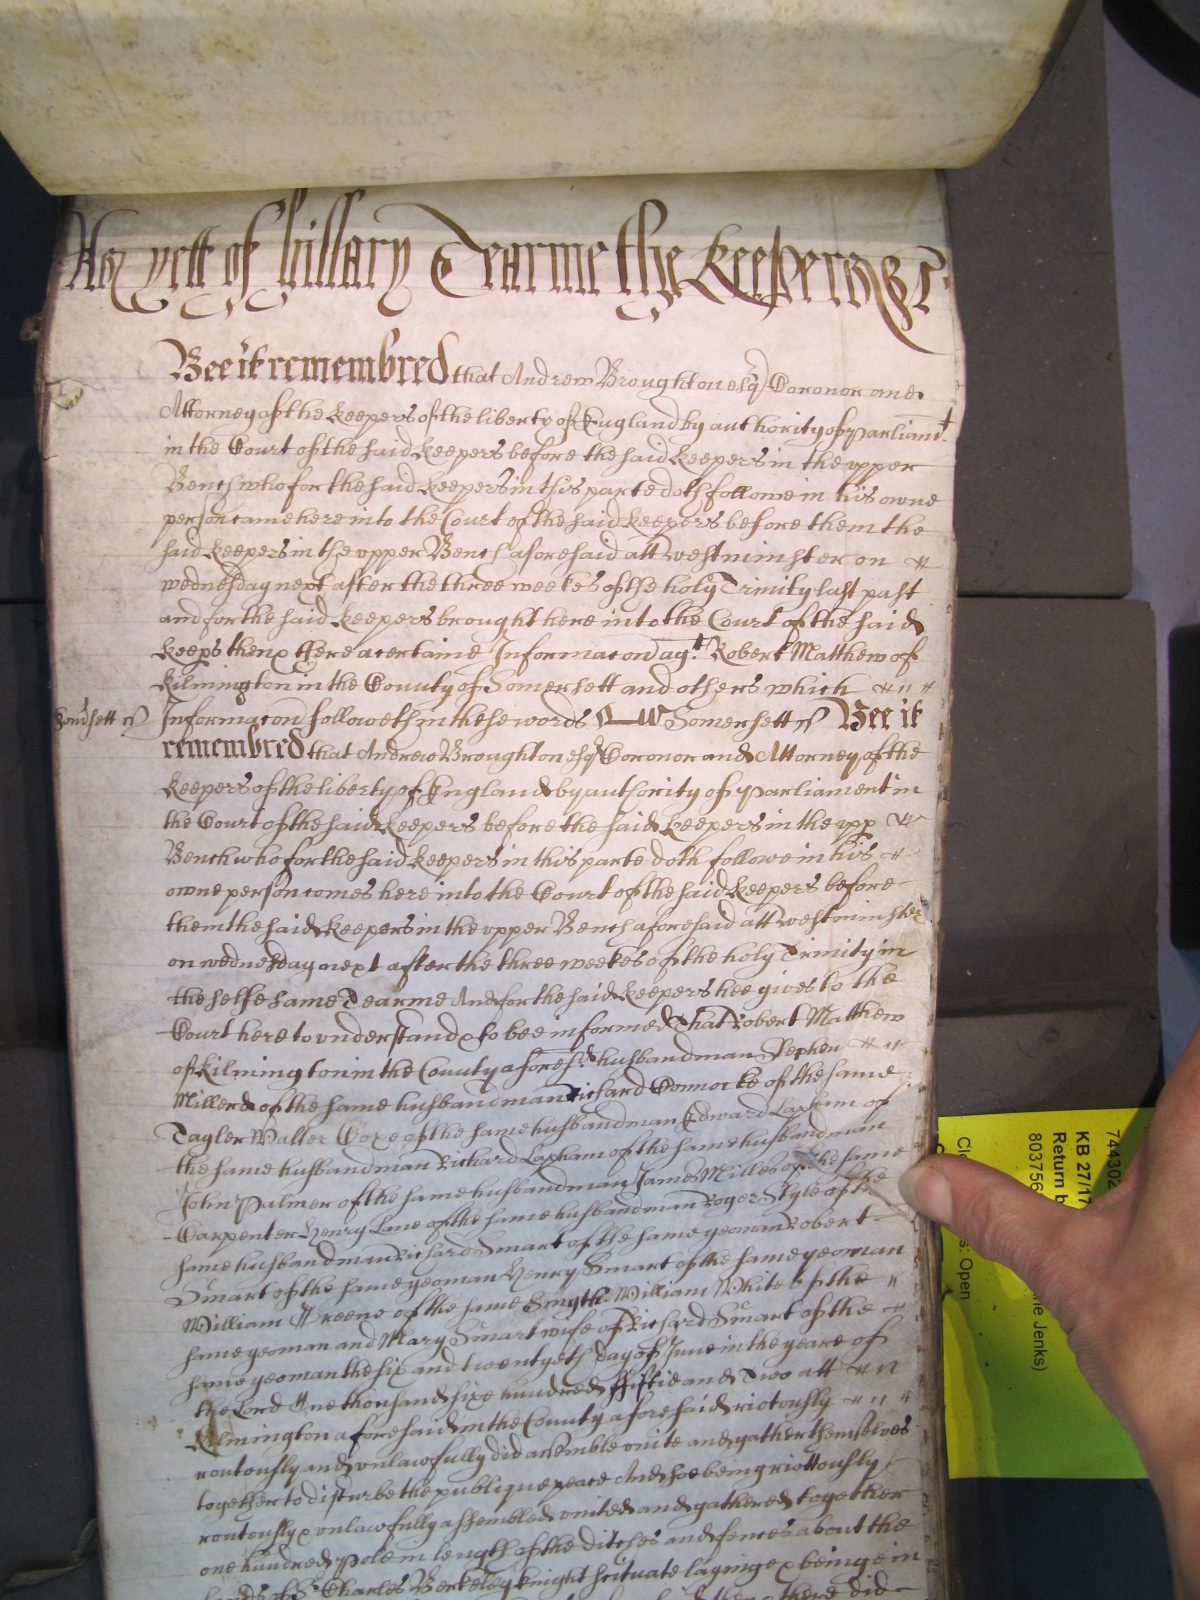 As yett of hillary Tearme the Keepers &c
Bee it remembred that Andrew Broughton esq Coronor and
Attorney of the Keepers of the liberty of England by authority of Parliamt
in the Court of the said Keepers before the said Keepers in the vpper
Bench who for the said Keepers in this parte doth followe in his owne
person came here into the Court of the said Keepers before them the
said Keepers in the vpper Bench aforesaid att westminster on
wednesday next after the three weekes of the holy Trinity last past
and for the said Keepers brought here into the Court of the said
Keeps then & there a certaine Informacon agt Robert Matthew of
Kilmington in the County of Somersett and others which
Somsett ss Informacon followeth in these words Somersett ss Bee it
remembred that Andrew Broughton esq Coronor and Attorney of the
Keepers of the liberty of England by authority of Parliament in
the Court of the said Keepers before the said Keepers in the vpp
Bench who for the said Keepers in this parte doth followe in his
owne person comes here into the Court of the said Keepers before
them the said Keepers in the vpper Bench aforesaid att westminster
on wednesday next after the three weekes of the holy Trinity in
the selfe same Tearme And for the said Keepers hee gives to the
Court here to vnderstand & to bee informed That Robert Matthew
of Kilmington in the County aforesd husbandman Stephen
Millerd of the same husbandman Richard Connocke of the same
Tayler Walter Cope of the same husbandman Edward Lapham of
the same husbandman Richard Lapham of the same husbandman
John Palmer of the same husbandman James Milles of the same
Carpenter Henry Lane of the same husbandman Roger Style of the
same husbandman Richard Smart of the same yeoman Robert
Smart of the same yeoman Henry Smart of the same yeoman
William Greene of the same Smyth William White of the
same yeoman and Mary Smart wife of Richard Smart of the
same yeoman the six and twentyeth day of June in the yeare of
the Lord One thousand sixe hundred fiftie and Two att
Kilmington aforesaid in the County aforesaid riotously
routously and vnlawfully did assemble vnite and gather themselves
together to disturbe the publique peace And soe being riottously
routously & vnlawfully assembled vnited and gathered together
one hundred pole in length of the ditches and fences about the
lands of Sr Charles Berkeley knight scituate layinge & beinge in
there did
74430
KB 27/17
Return b
80375
Jenks)
: Open